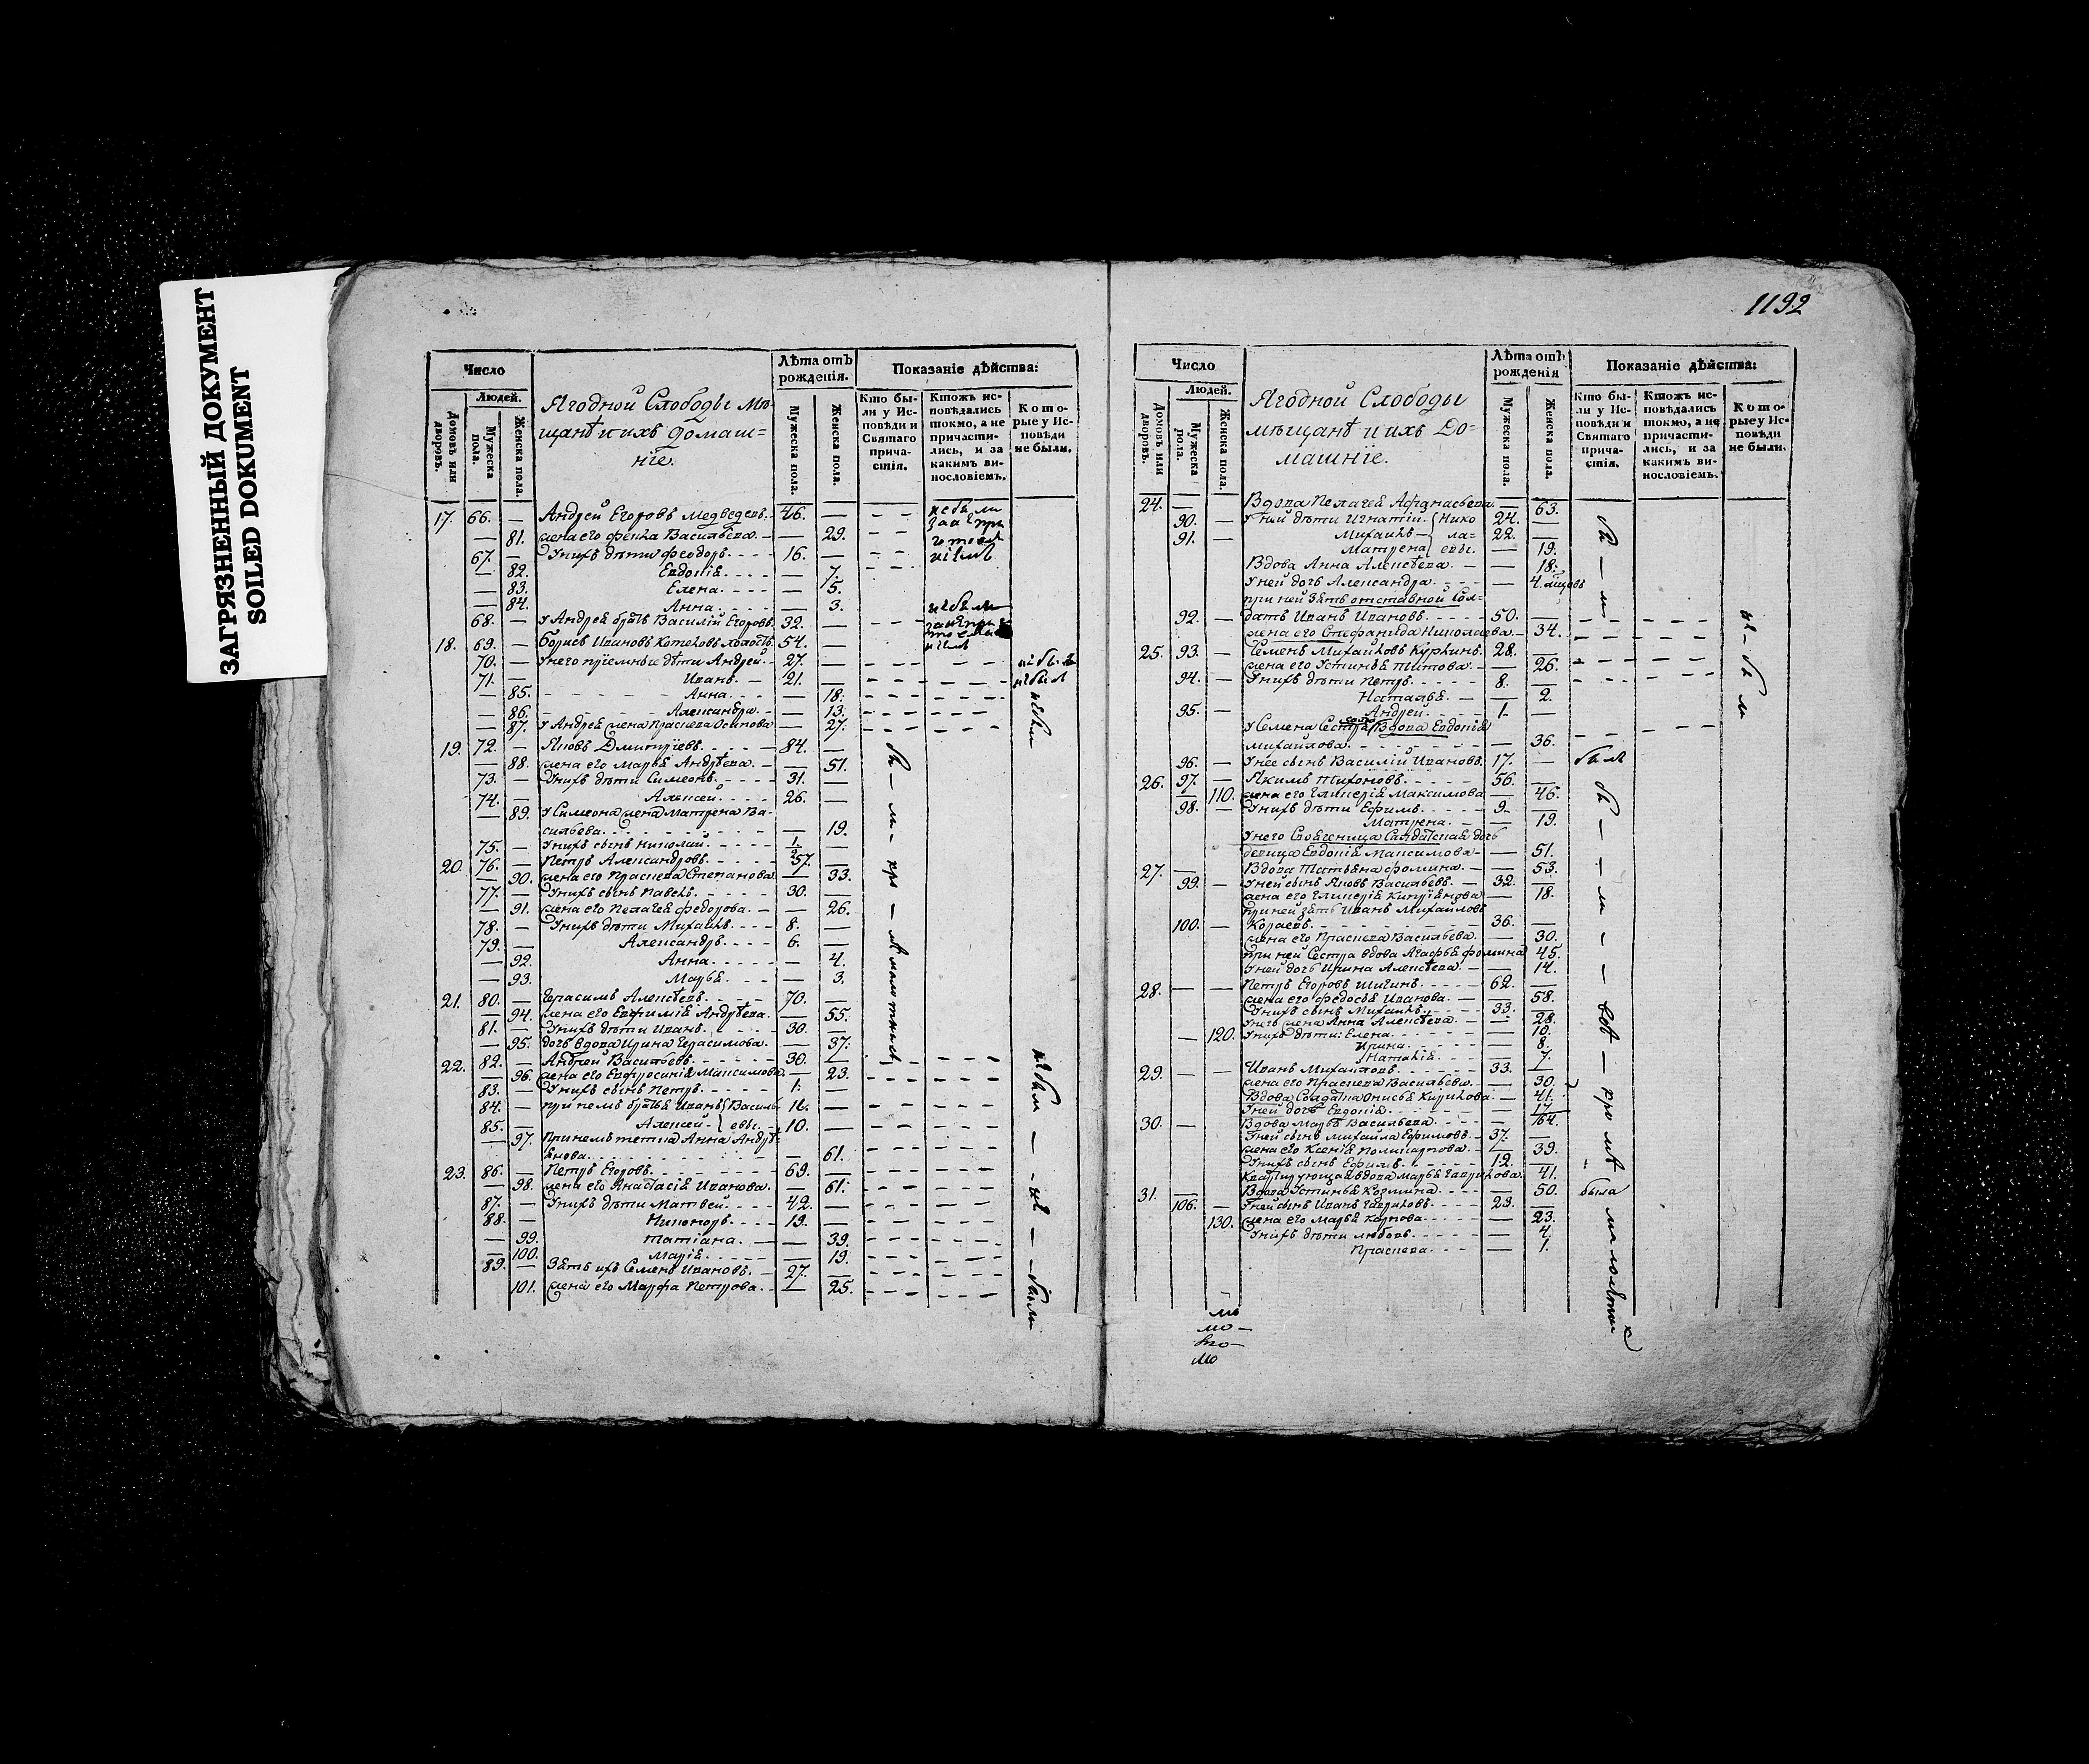 ЗАГРЯЗНЕННЫЙ ДОКУМЕНТ
SOILED DOKUMENT
1192
Число
Людей.
Домовъ или дворовъ.
Мужеска пола.
Женска пола.
Ягодной Слободы Мѣ-
щанѣ и ихъ домаш=
ніе.
Лѣта отъ рожденія.
Мужеска пола.
Женска пола.
Показаніе дѣйства:
Кто бы-
ли у Ис-
повѣди и
Святаго
прича-
стія.
Ктожъ ис-
повѣдались
токмо, а не
причасти-
лись, и за
какимъ ви-
нословіемъ.
Кото-
рые у Ис-
повѣди
не были.
17. 66. — Андрей Егоровъ Медведевъ. 46. —
— 81. жена его Фекла Васильева. — 29.
67. — У нихъ дѣти Феодоръ. 16. —
— 82. Евдокія — 7.
— 83. Елена — 5.
— 84. Анна — 3.
68. — У Андрея братъ Василій Егоровъ. 32. —
18. 69. — Борисъ Ивановъ холостъ. 54. —
70. — У него пріемные дѣти Андрей. 27. —
71. — Иванъ. 21. —
— 85. Анна. — 18.
— 86. Александра. — 13.
— 87. У Андрея жена Прасковья Осипова — 27.
19. 72. — Яковъ Дмитріевъ. 84. —
— 88. жена его Марья Андрѣева. — 51.
73. — У нихъ дѣти Симеонъ. 31. —
74. — Алексей. 26. —
— 89. У Симеона жена Матрена Ва-
сильева. — 19.
75. — У нихъ сынъ Николай.
20. 76. — Петръ Александровъ. 57. —
— 90. жена его Праскева Степанова. — 33.
77. — У нихъ сынъ Павелъ. 30. —
— 91. жена его Пелагея Федорова. — 26.
78. — У нихъ дѣти Михаилъ. 8. —
79. — Александръ. 6. —
— 92. Анна. — 4.
— 93. Марья. — 3.
21. 80. — Герасимъ Алексѣевъ. 70. —
— 94. жена его Евфимія Андрѣева. — 55.
81. — У нихъ дѣти Иванъ. 30. —
— 95. дочь вдова Ирина Герасимова. — 37.
22. 82. — Андрей Васильевъ. 30. —
— 96. жена его Евфросинія Максимова. — 23.
83. — У нихъ сынъ Петръ. 1. —
84. — при немъ братья Иванъ Василь- 16. —
85. — Алексей евы. 10. —
— 97. При немъ тетка Анна Андрѣ-
янова. — 61.
23. 86. — Петръ Егоровъ. 69. —
— 98. жена его Анастасія Иванова. — 61.
87. — У нихъ дѣти Матвей. 42. —
88. — Никоноръ. 19. —
— 99. Татіана. — 39.
— 100. Марія. — 19.
89. — Зять ихъ Семенъ Ивановъ. 27. —
101. жена его Марфа Петрова. — 25.
Число
Людей.
Домовъ или дворовъ.
Мужеска пола.
Женска пола.
Ягодной Слободы
мѣщанѣ и ихъ До=
машніе.
Лѣта отъ рожденія
Мужеска пола.
Женска пола.
Показаніе дѣйства:
Кто бы-
ли у Ис-
повѣди и
Святаго
прича-
стія.
Ктожъ ис-
повѣдались
токмо, а не
причасти-
лись, и за
какимъ ви-
нословіемъ.
Кото-
рые у Ис-
повѣди
не были.
24. — Вдова Пелагея Афанасьева — 63.
90. — У ней дѣти Игнатій Нико 24. —
91. — Михаилъ ла= 22. —
Матрена евы. — 19.
Вдова Анна Алексѣева. — 18.
У ней дочь Александра. — 4.
при ней зять отставной Сол=
92. — датъ Иванъ Ивановъ. 50. —
жена его Стефанида Николаева. — 34.
25. 93. — Семенъ Михайловъ Куркинъ. 28. —
жена его Устинья Титова. — 26.
94. — У нихъ дѣти Петръ. 8. —
Наталья. — 2.
95. — Андрей. 1. —
У Семена Сестра Вдова Евдокія
Михайлова. — 36.
96. — У нее сынъ Василій Ивановъ. 17. — былъ
26. 97. — Якимъ Тихоновъ. 56. —
— 110. жена его Гликерія Максимова — 46.
98. — У нихъ дѣти Ефимъ. 9. —
Матрена. — 19.
У него Свояченица Салдатская дочь
девица Евдокія Максимова — 51.
27. — Вдова Татьяна Фомина. — 53.
99. — У ней сынъ Яковъ Васильевъ. 32. —
жена его Гликерія Кипріянова — 18.
При ней зять Иванъ Михайловъ
100. — 36. —
жена его Праскева Васильева. — 30.
При ней Сестра вдова Агафья Фомина 45.
У ней дочь Ирина Алексѣева. — 14.
28. — — Петръ Егоровъ Шигинъ. 62. —
жена его Федосья Иванова. — 58.
У нихъ сынъ Михаилъ. 33. —
У него жена Анна Алексѣева. — 28.
— 120. У нихъ дѣти: Елена. — 10.
Ирина. — 8.
Наталія. — 7.
29. — — Иванъ Михайловъ. 33. —
жена его Праскева Васильева. — 30.
Вдова Солдатка Анисья Кирилова. — 41.
У ней дочь Евдокія. — 17.
30. — Вдова Марья Васильева. — 64.
У ней сынъ Михайла Ефимовъ. 37. —
жена его Ксенія Поликарпова. — 39.
У нихъ сынъ Ефимъ. 12. —
Квартирующая вдова Марья Гаврилова. 41.
31. — Вдова Устинья Козмина. — 50. была
106. — У ней сынъ Иванъ Гавриловъ. 23. —
130. жена его Марья Карпова. — 23.
У нихъ дѣти Любовь. — 4.
Праскева. — 1.